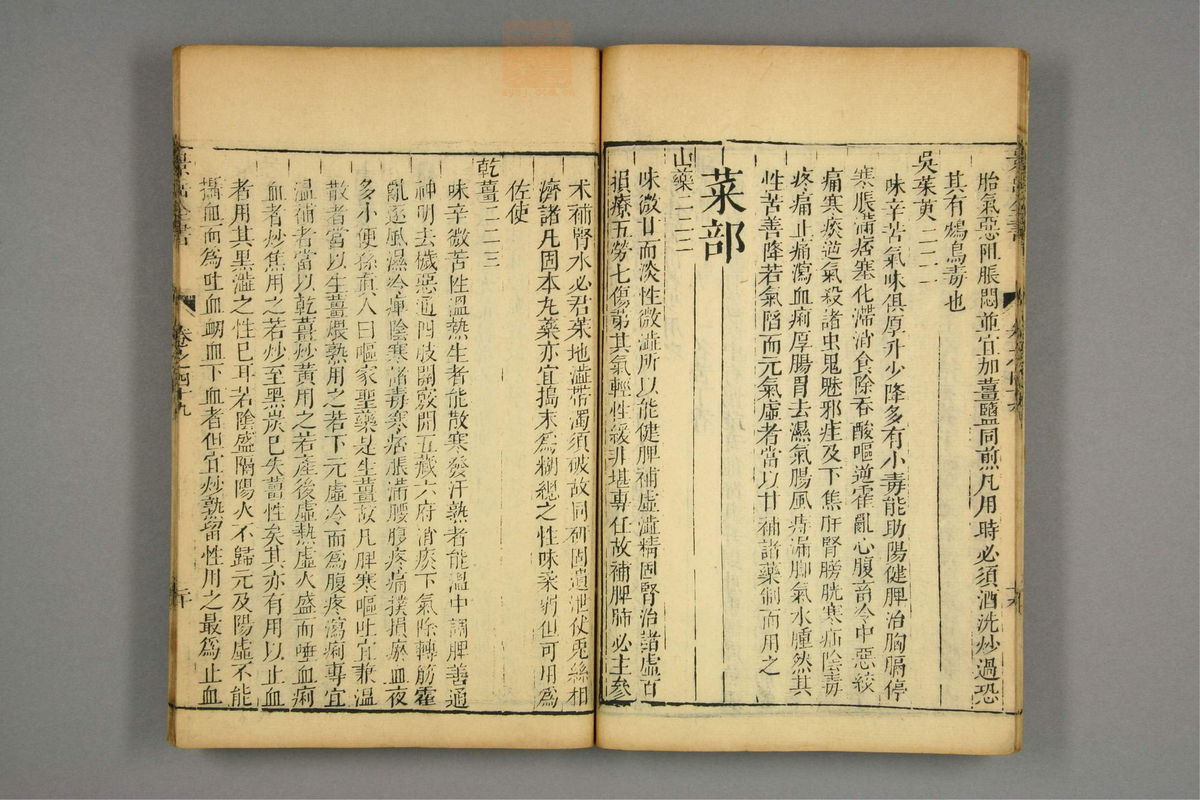 胎氣惡阻脹悶並宜加薑鹽同煎凡用時必須酒洗炒過恐
其有鴆鳥毒也
吳茱萸二二一
味辛苦氣味俱厚升少降多有小毒能助陽健脾治胸膈停
寒脹滿痞塞化滯消食除吞酸嘔逆霍亂心腹蓄冷中惡絞
痛寒痰逆氣殺諸虫鬼魅邪疰及下焦肝腎膀胱寒疝陰毒
疼痛止痛瀉血痢厚腸胃去濕氣腸風痔漏脚氣水腫然其
性苦善降若氣陷而元氣虛者當以甘補諸藥制而用之
菜部
山藥二二二
味微甘而淡性微澁所以能健脾補虛澁精固腎治諸虛百
損療五勞七傷第其氣輕性緩非堪專任故補脾肺必主參
术補腎水必君茱地澁帶濁須破故同研固遺泄仗兎絲相
濟諸凡固本丸藥亦宜搗末爲糊總之性味柔弱但可用爲
佐使
乾薑二二三
味辛微苦性溫熱生者能散寒發汗熟者能溫中調脾善通
神明去穢惡通四肢開竅開五藏六府消痰下氣除轉筋霍
亂逐風濕冷痺陰寒諸毒寒痞脹滿腰腹疼痛撲損瘀血夜
多小便孫眞人曰嘔家聖藥是生薑故凡脾寒嘔吐宜兼溫
散者當以生薑煨熟用之若下元虛冷而爲腹疼瀉痢專宜
溫補者當以乾薑炒黃用之若產後虛熱虛火盛而唾血痢
血者炒焦用之若炒至黑炭已失薑性矣其亦有用以止血
者用其黑澁之性已耳若陰盛隔陽火不歸元及陽虛不能
攝血而爲吐血衂血下血者但宜炒熟留性用之最爲止血
卷之四十九